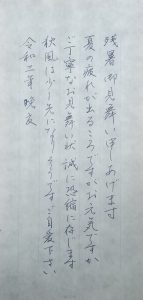 残暑御見舞い申しあげます
夏の疲れが出るころですがお元気ですか
ご丁寧なお見舞い状 誠に恐縮に存じます
秋風は少し先になりそうです ご自愛下さい
令和三年 晩夏